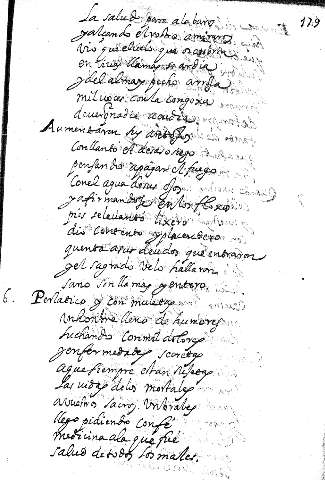 179
La salud pera al curo
y alçando el rostro a mirar
vio que el velo que
en vivas llamas se ardia
y del alma y pecho arroja
mil voçes con la congoxa
de ver q nadie acudia
Aumentaron sus antojos
con llanto el desasosiego
pensando apagar el fuego
con el agua de sus ojos
y afirmandose en los flexos
pies se levanto lixero
dio contento y plaçentero
quenta a sus deudos que entraron
y el sagrado velo hallaron
sano sin llamas y entero.
6. Perlatico y con muletas
un hombre lleno de humores
luchando con mil dolores
y enfermedades secretas
a que siempre estan sujetas
las vidas delos mortales
a vuestros sacros umbrales
llego pidiendo con fe
medicina ala que fue
salud de todos los males.